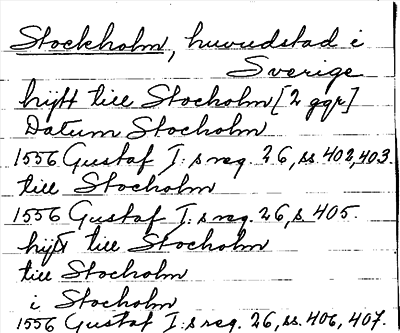 Stockholm, huvudstad i
Sverige
hijtt till Stocholm [2 ggr]
Datum Stocholm
1556 Gustaf I:s reg. 26, ss. 402, 403.
till Stocholm
1556 Gustaf I:s reg. 26, s 405.
hijt till Stocholm
till Stocholm
i Stocholm
1556 Gustaf I:s reg. 26, ss. 406, 407.